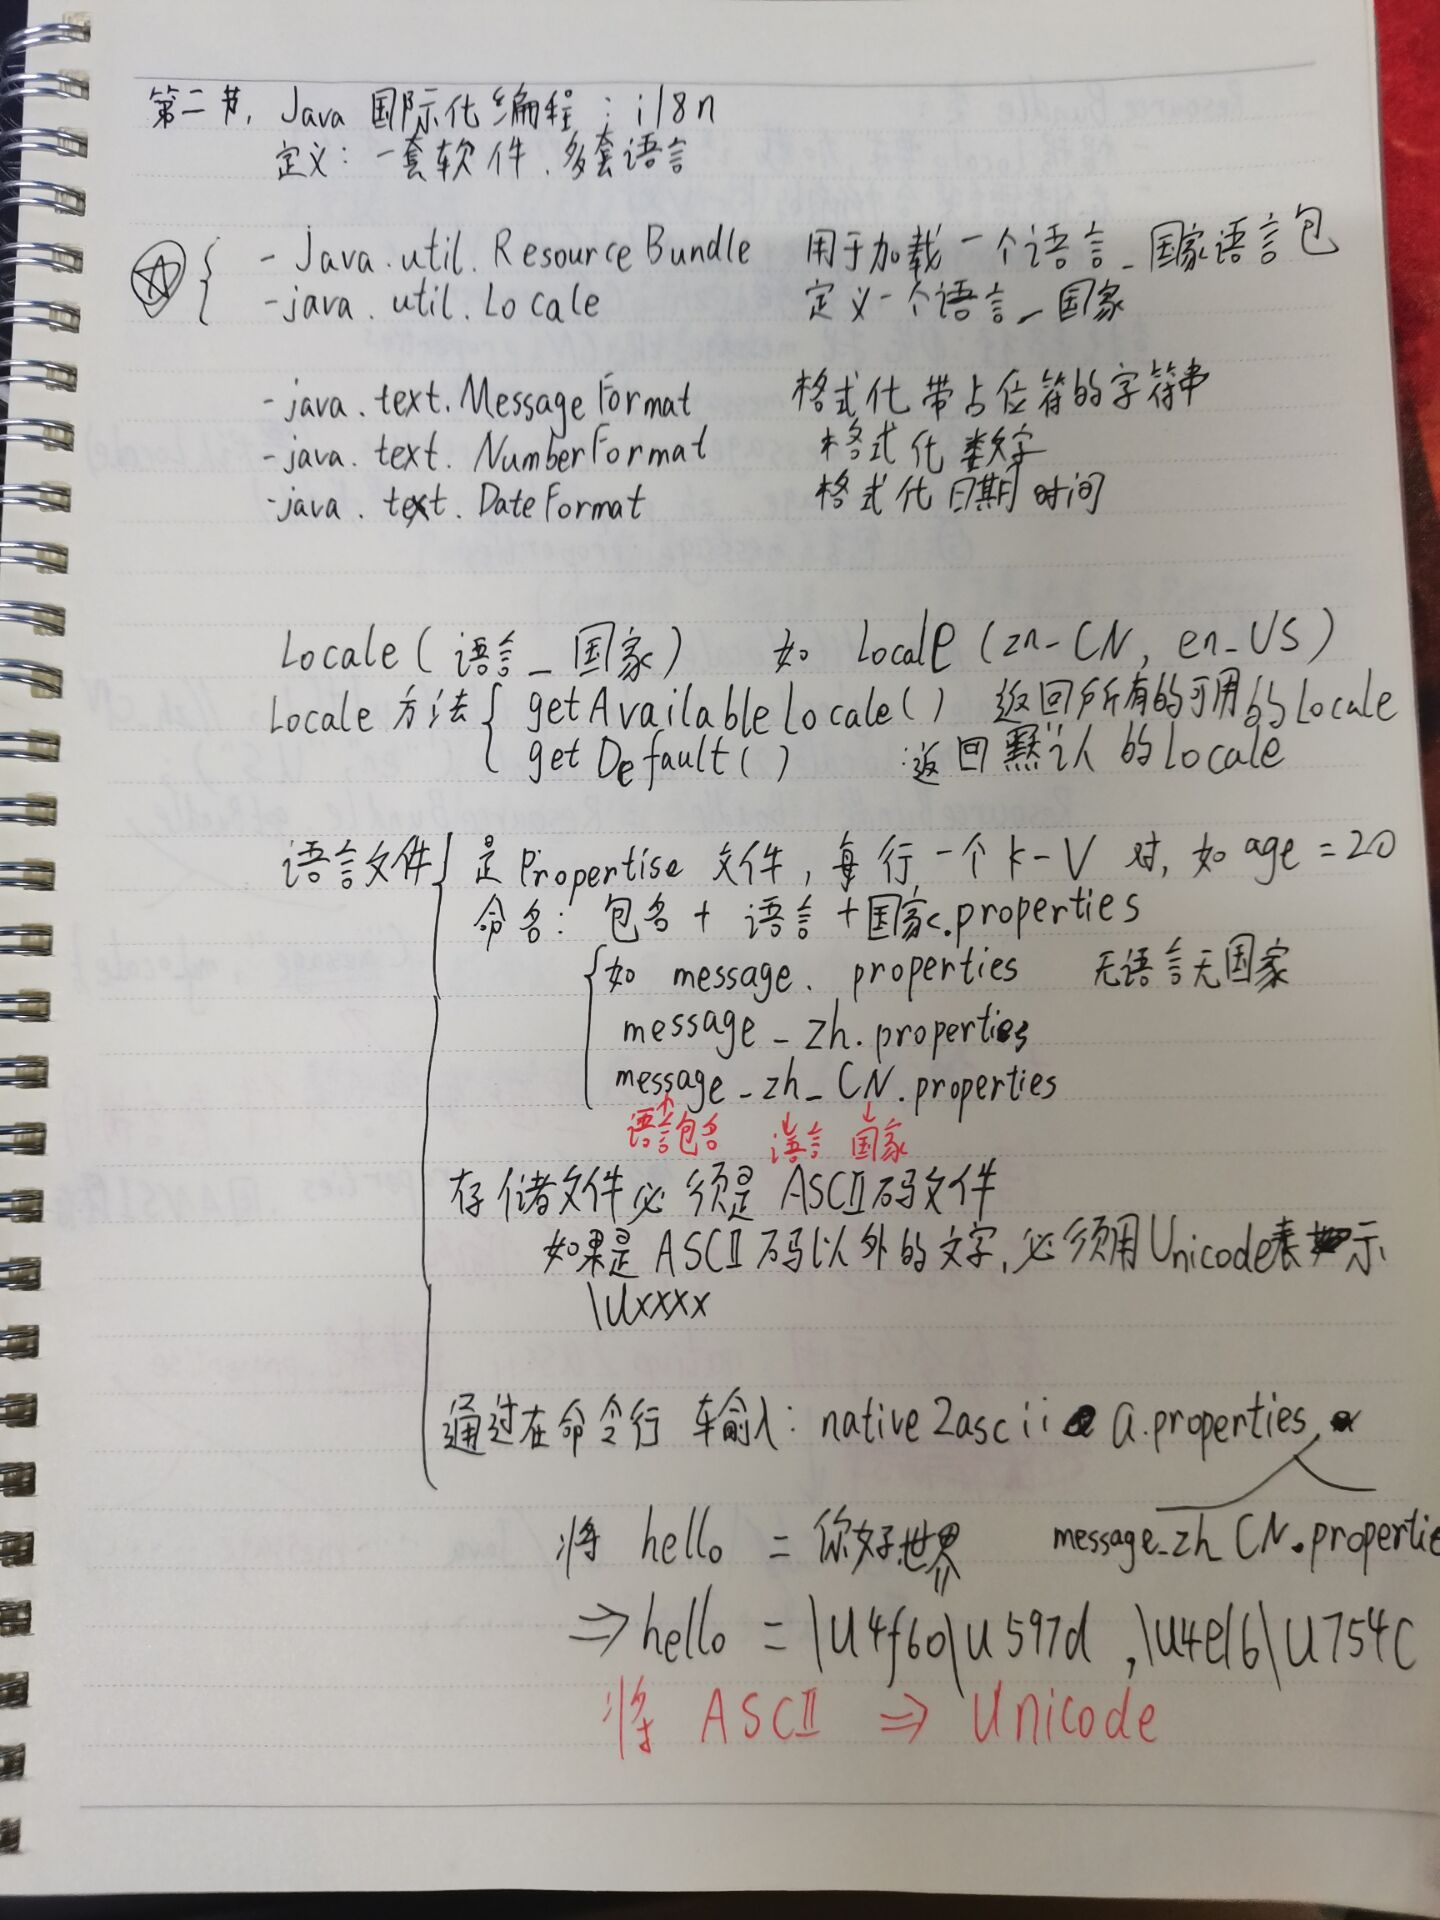 第二节, Java 国际化编程: i18n
定义: 一套软件、多套语言
- Java.util.ResourceBundle 用于加载一个语言_国家语言包
- java.util.Locale 定义一个语言_国家
- java.text.MessageFormat 格式化带占位符的字符串
- java.text.NumberFormat 格式化数字
- java.text.DateFormat 格式化日期时间
Locale(语言_国家) 如 Locale(zn-CN, en_US)
Locale方法{ getAvailableLocale() 返回所有的可用的Locale
getDefault() 返回默认的Locale
语言文件{ 是Propertise文件, 每行一个k-V对, 如age=20
命名: 包名+语言+国家.properties
{如 message.properties 无语言无国家
message_zh.properties
message_zh_CN.properties
语言包名 语言 国家
存储文件必须是ASCII码文件
如果是ASCII码以外的文字, 必须用Unicode表示
\uxxxx
通过在命令行 输入: native2ascii a.properties
将 hello = 你好世界 message_zh_CN.propertie
⇒ hello = \u4f60\u597d,\u4e16\u754C
将 ASCII ⇒ Unicode